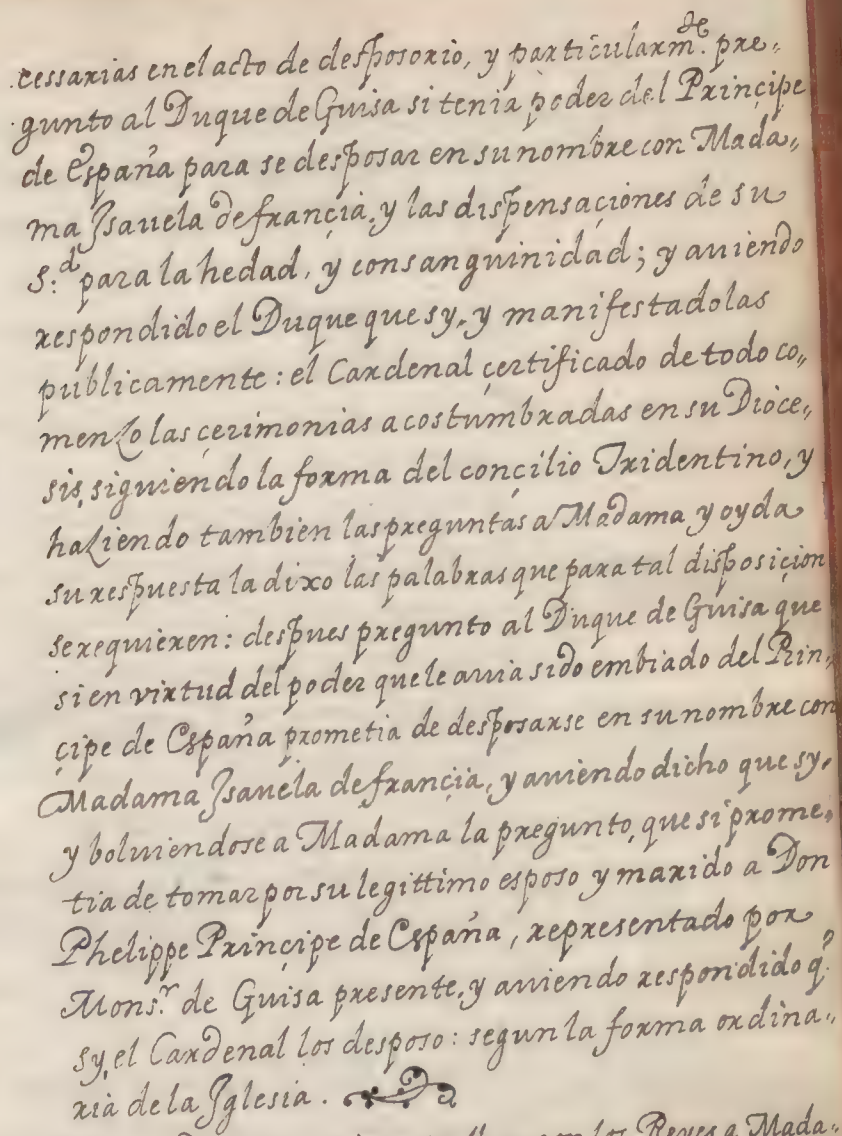 cessarias en el acto de desposorio, y particularm.de pre,,
gunto al Duque de Guisa si tenia poder del Prinçipe
de España para se desposar en su nombre con Mada,,
ma Isauela de françia, y las dispensaçiones de su
S:d para la hedad, y consanguinidad; y auiendo
respondido el Duque que sy, y manifestadolas
publicamente: el Cardenal çertificado de todo co,,
menzo las çerimonias acostumbradas en su Dioce,,
sis, siguiendo la forma del conçilio Tridentino, y
haziendo tambien las preguntas a Madama y oyda
su respuesta la dixo las palabras que para tal disposiçion
se requieren: despues pregunto al Duque de Guisa que
si en virtud del poder que le auia sido embiado del Prin,,
çipe de España prometia de desposarse en su nombre con
Madama Isauela de françia, y auiendo dicho que sy,
y boluiendose a Madama la pregunto, que si prome,,
tia de tomar por su legittimo esposo y marido a Don
Phelippe Prinçipe de España, representado por
Mons.r de Guisa presente, y auiendo respondido q.
sy, el Cardenal los desposo: segun la forma ordina,,
ria de la Iglesia.
los Reyes a Mada,,